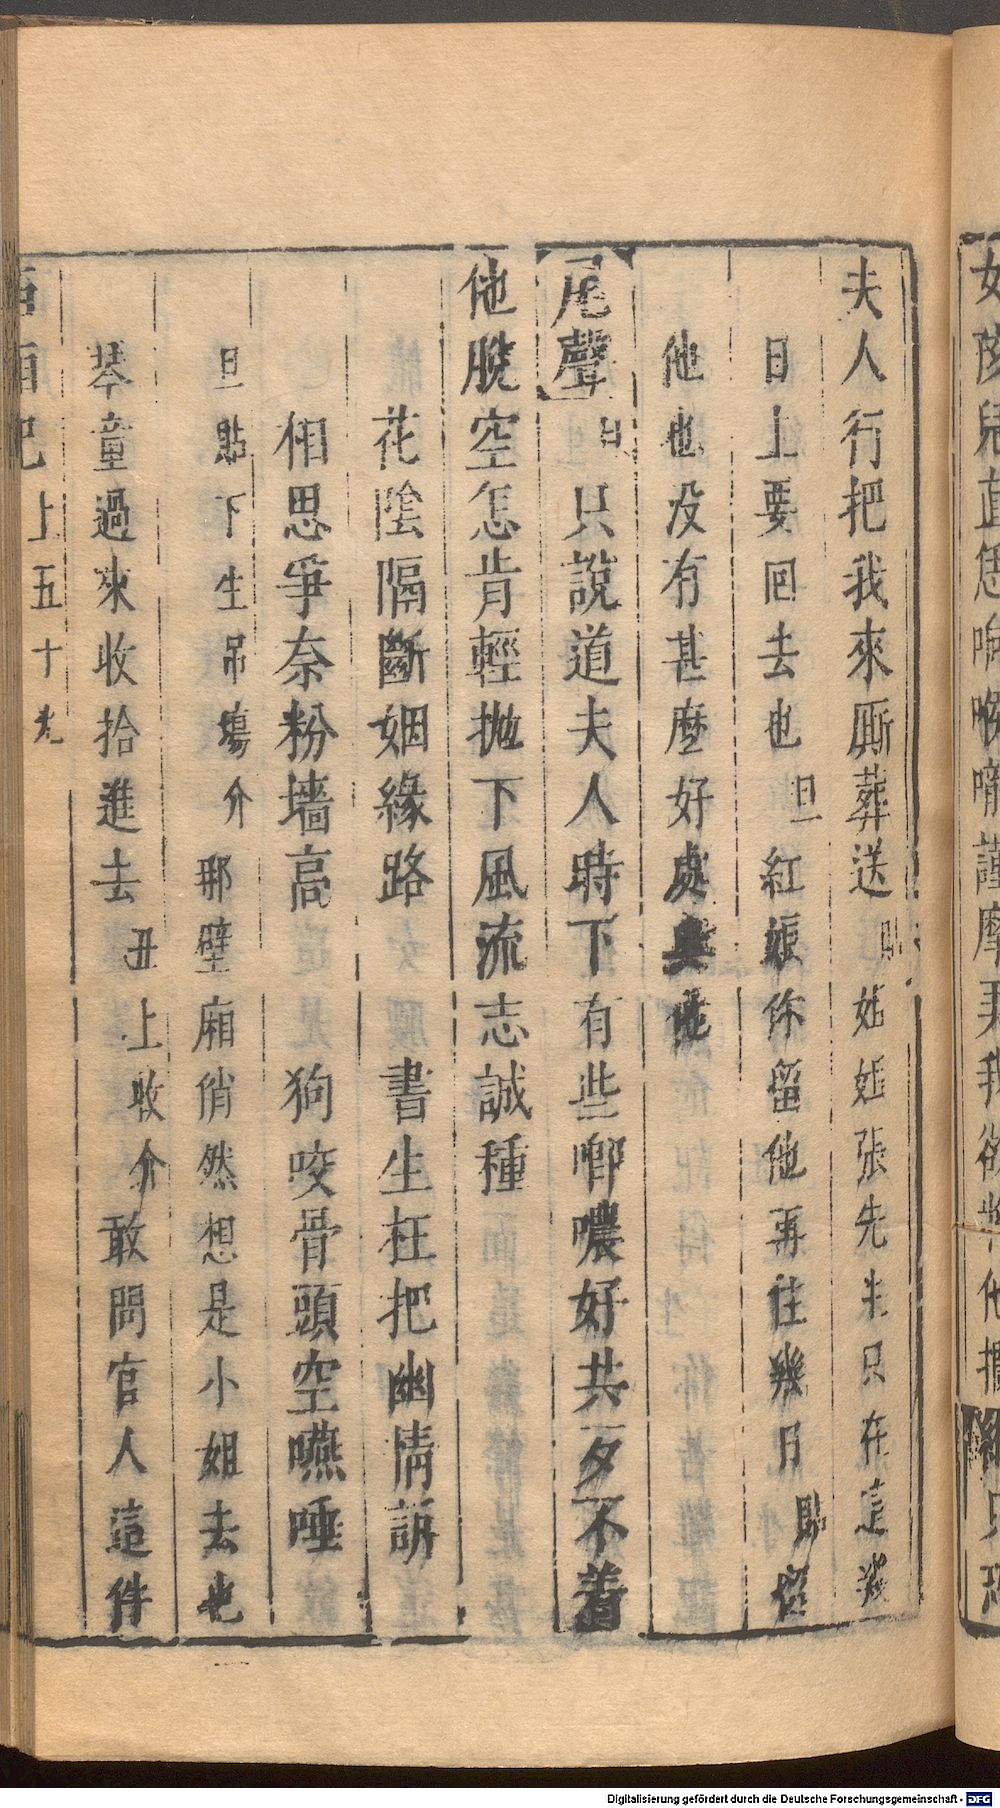 夫人行把我來厮葬送 貼 姐姐張先生只在這幾
日上要回去也 旦 紅娘你留他再住幾日 貼 留
他也没有甚麽好處與他
尾聲 旦 只說道夫人時下有些唧噥好共歹不着
他脫空怎肯輕拋下風流志誠種
花陰隔斷姻緣路 書生枉把幽情訴
相思爭奈粉墻高 狗咬骨頭空嚥唾
旦貼下生吊場介 那壁廂俏然想是小姐去也
琴童過來收拾進去 丑上收介 敢問官人這件
西廂記上五十
Digitalisierung gefördert durch die Deutsche Forschungsgemeinschaft - DFG